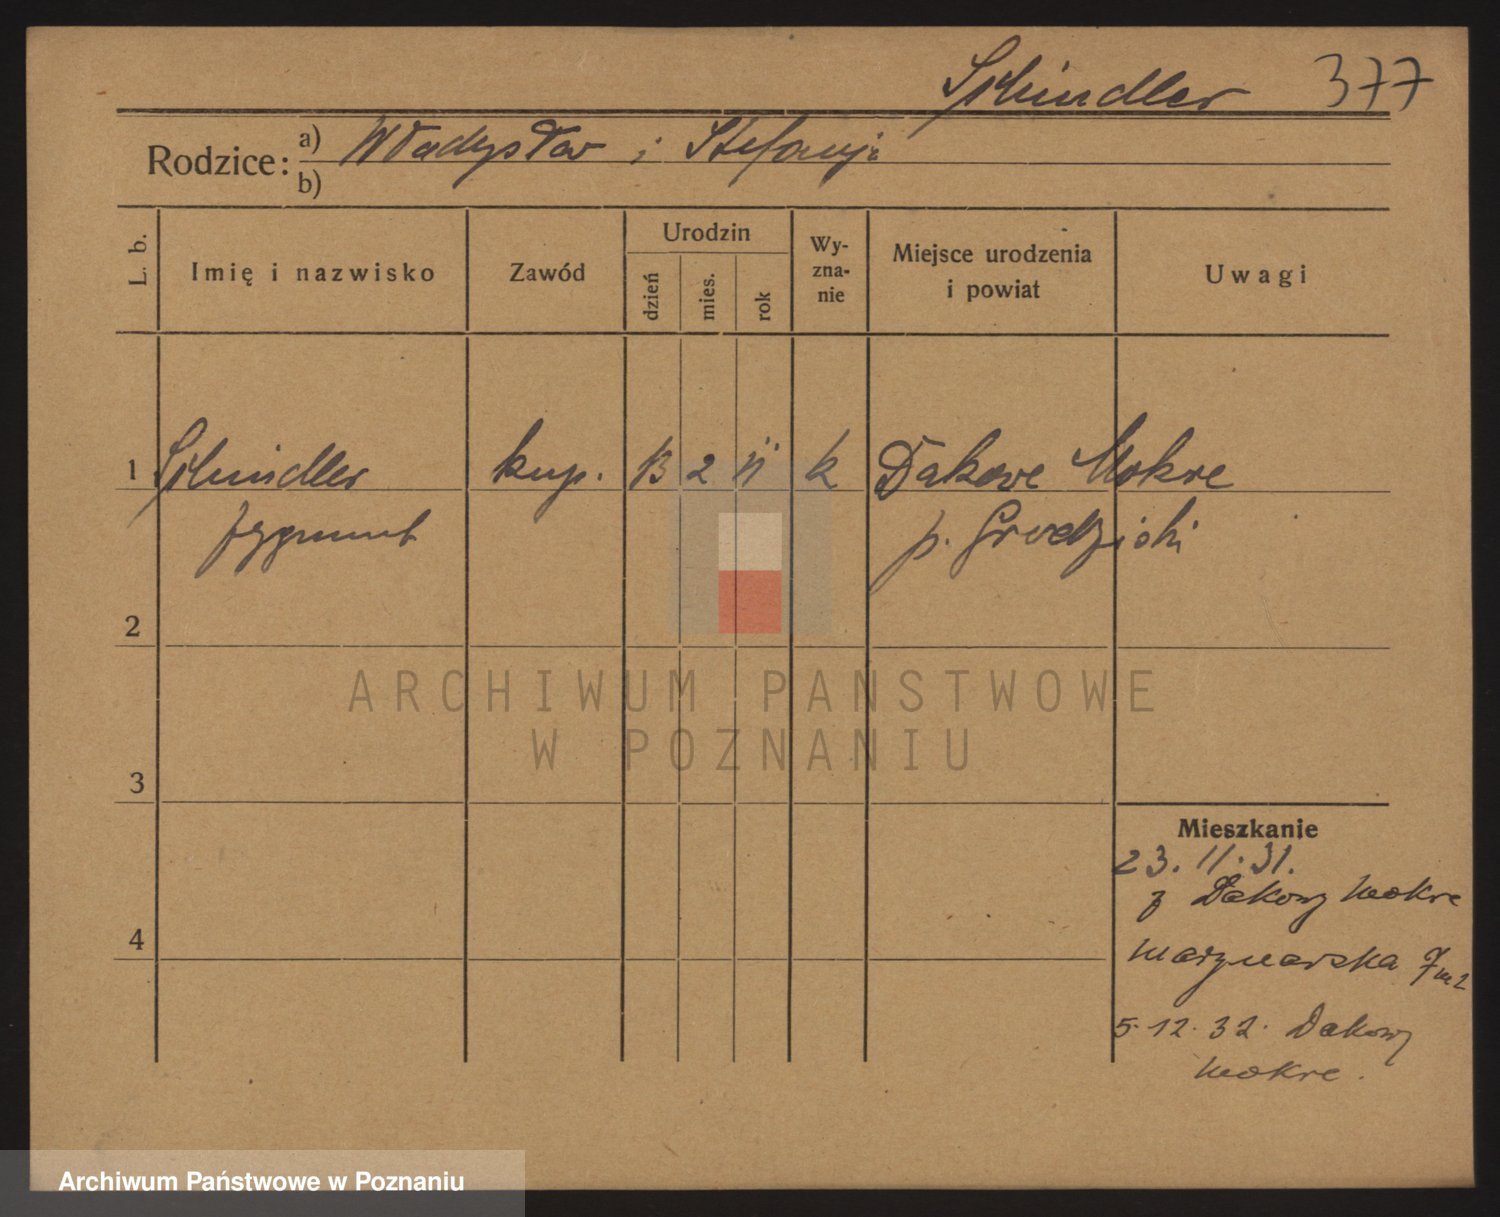 Schindler 377
Rodzice: a) Władysław i Stefanja
b)
L. b. Imię i nazwisko Zawód Urodzin dzień mies. rok Wy-zna-nie Miejsce urodzenia i powiat Uwagi
1 Schindler kup. 13 2 11 k Dakowe Mokre
Zygmunt p. Grodziski
2
ARCHIWUM PAŃSTWOWE
W POZNANIU
3
Mieszkanie
23. 11. 31.
z Dakowy Mokre
4
Marynarska 7 m 2
5. 12. 32. Dakowy
Mokre.
Archiwum Państwowe w Poznaniu